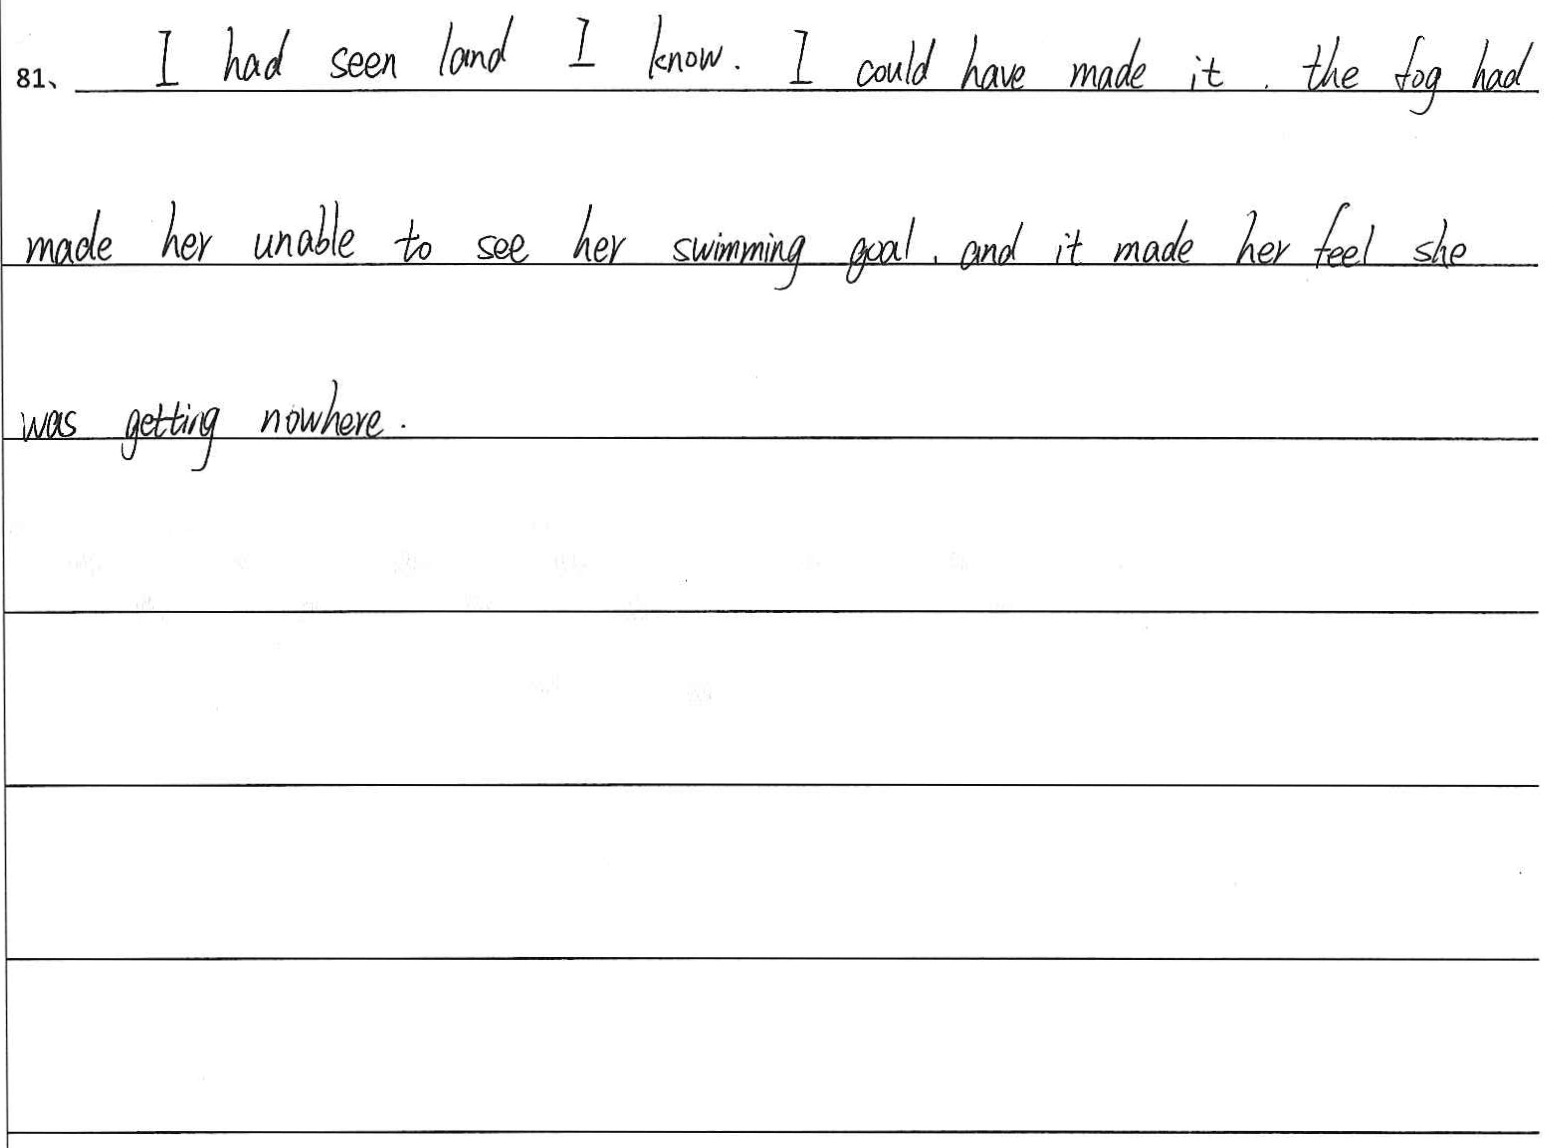 81、 I had seen land I know. I could have made it. the fog had
made her unable to see her swimming goal, and it made her feel she
was getting nowhere.